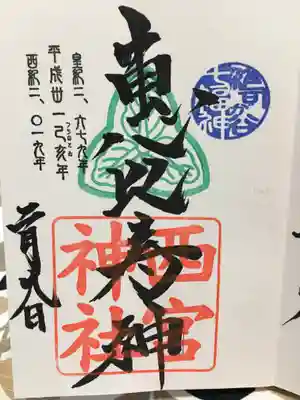 七福神
恵比寿神
西宮
神社
皇紀二、六七九年
平成卅一己亥年
西紀二、〇一九年